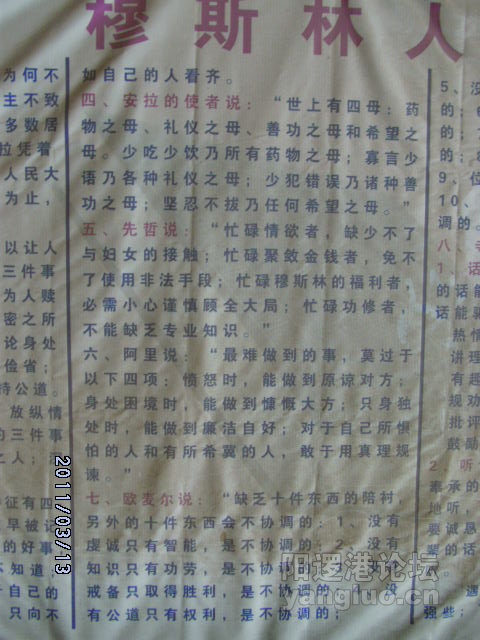 穆斯林人
为何不
主不致
多数居
拉凭着
人民大
为止，
以让人
三件事
为人赎
密之所
论身处
俭省；
持公道。
放纵情
的三件事
之人；
征有四
早被记
的好事
不知道；
于自己的
只向不
如自己的人看齐。
四、安拉的使者说：“世上有四母：药
物之母、礼仪之母、善功之母和希望之
母。少吃少饮乃所有药物之母；寡言少
语乃各种礼仪之母；少犯错误乃诸种善
功之母；坚忍不拔乃任何希望之母。”
五、先哲说：“忙碌情欲者，缺少不了
与妇女的接触；忙碌聚敛金钱者，免不
了使用非法手段；忙碌穆斯林的福利者，
必需小心谨慎顾全大局；忙碌功修者，
不能缺乏专业知识。”
六、阿里说：“最难做到的事，莫过于
以下四项：愤怒时，能做到原谅对方；
身处困境时，能做到慷慨大方；只身独
处时，能做到廉洁自好；对于自己所惧
怕的人和有所希冀的人，敢于用真理规
谏。”
七、欧麦尔说：“缺乏十件东西的陪衬，
另外的十件东西会不协调的：1、没有
虔诚只有智能，是不协调的；2、没有
知识只有功劳，是不协调的；
戒备只取得胜利，是不协调的；4、没
有公道只有权利，是不协调的；
5、没
的；6
的；7
的；8
9、位
10、
调的。
八、
1、话
的话能
话能驱
热情
讲理
有趣
规劝
批评
鼓励
2、听
奉承的
地听，
要诚恳
辈的话
遇
强些；
2011/03/13
阳逻港论坛
yangluo.cn